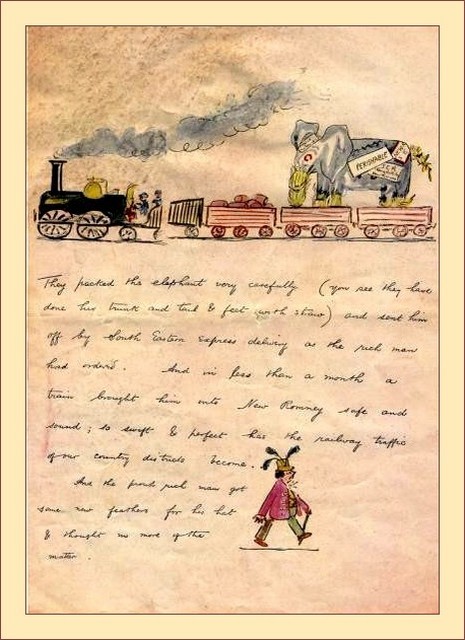 PERISHABLE
They packed the elephant very carefully (you see they have
done his trunk and tail & feet with straw) and sent him
off by South Eastern Express delivery as the rich man
had order'd. And in less than a month a
train brought him into New Romney safe and
sound; so swift & perfect has the railway traffic
of our country districts become.
And the proud rich man got
some new feathers for his hat
& thought no more of the
matter.